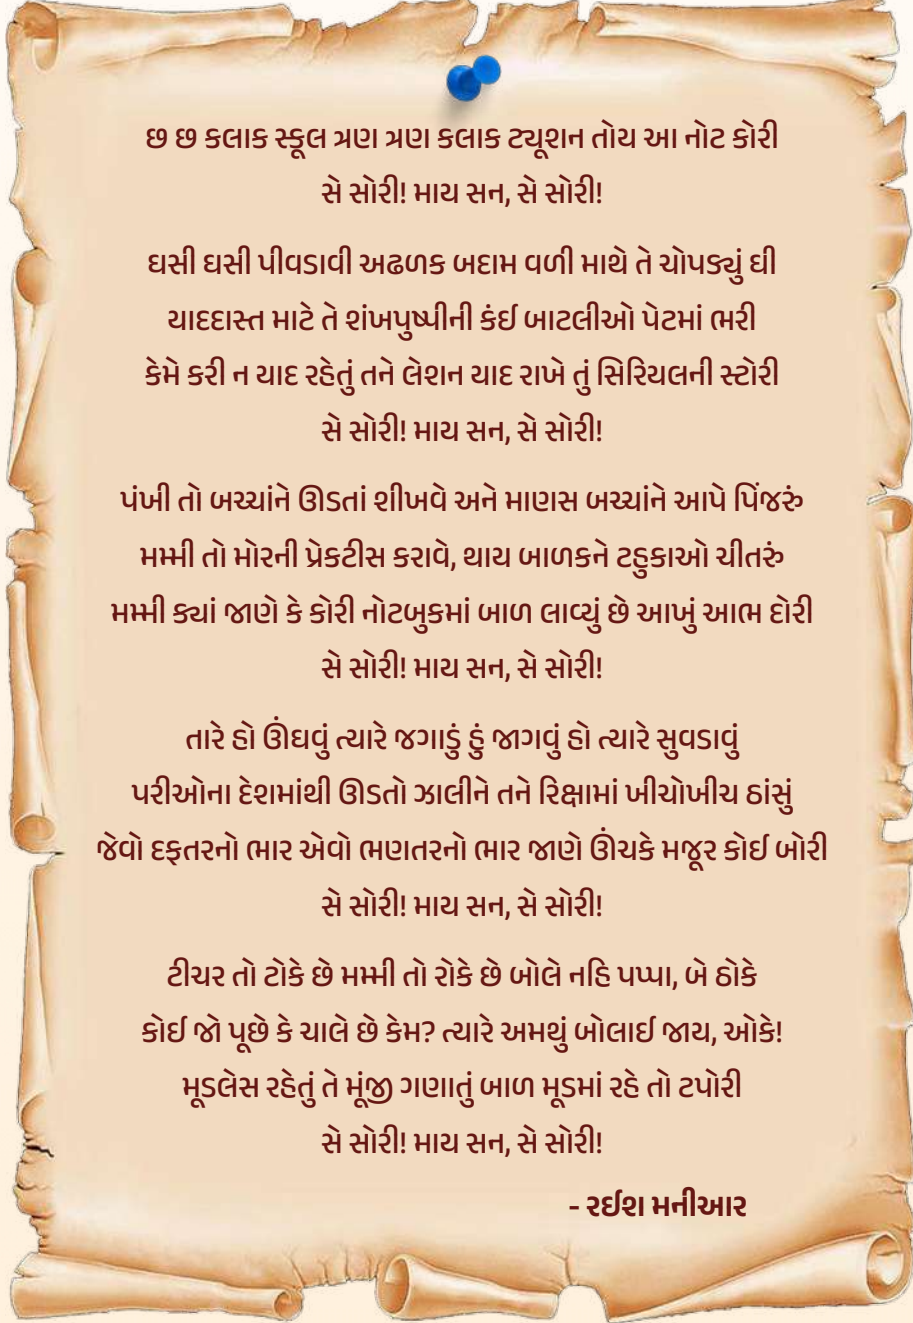 છ છ કલાક સ્કૂલ ત્રણ ત્રણ કલાક ટ્યૂશન તોય આ નોટ કોરી
સે સોરી! માય સન, સે સોરી!
ઘસી ઘસી પીવડાવી અઢળક બદામ વળી માથે તે ચોપડ્યું ઘી
યાદદાસ્ત માટે તે શંખપુષ્પીની કંઈ બાટલીઓ પેટમાં ભરી
કેમે કરી ન યાદ રહેતું તને લેશન યાદ રાખે તું સિરિયલની સ્ટોરી
સે સોરી! માય સન, સે સોરી!
પંખી તો બચ્ચાંને ઊડતાં શીખવે અને માણસ બચ્ચાંને આપે પિંજરું
મમ્મી તો મોરની પ્રેકટીસ કરાવે, થાય બાળકને ટહુકાઓ ચીતરું
મમ્મી ક્યાં જાણે કે કોરી નોટબુકમાં બાળ લાવ્યું છે આખું આભ દોરી
સે સોરી! માય સન, સે સોરી!
તારે હો ઊંઘવું ત્યારે જગાડું હું જાગવું હો ત્યારે સુવડાવું
પરીઓના દેશમાંથી ઊડતો ઝાલીને તને રિક્ષામાં ખીચોખીચ ઠાંસું
જેવો દફતરનો ભાર એવો ભણતરનો ભાર જાણે ઊંચકે મજૂર કોઈ બોરી
સે સોરી! માય સન, સે સોરી!
ટીચર તો ટોકે છે મમ્મી તો રોકે છે બોલે નહિ પપ્પા, બે ઠોકે
કોઈ જો પૂછે કે ચાલે છે કેમ? ત્યારે અમથું બોલાઈ જાય, ઓકે!
મૂડલેસ રહેતું તે મૂંજી ગણાતું બાળ મૂડમાં રહે તો ટપોરી
સે સોરી! માય સન, સે સોરી!
- રઈશ મનીઆર